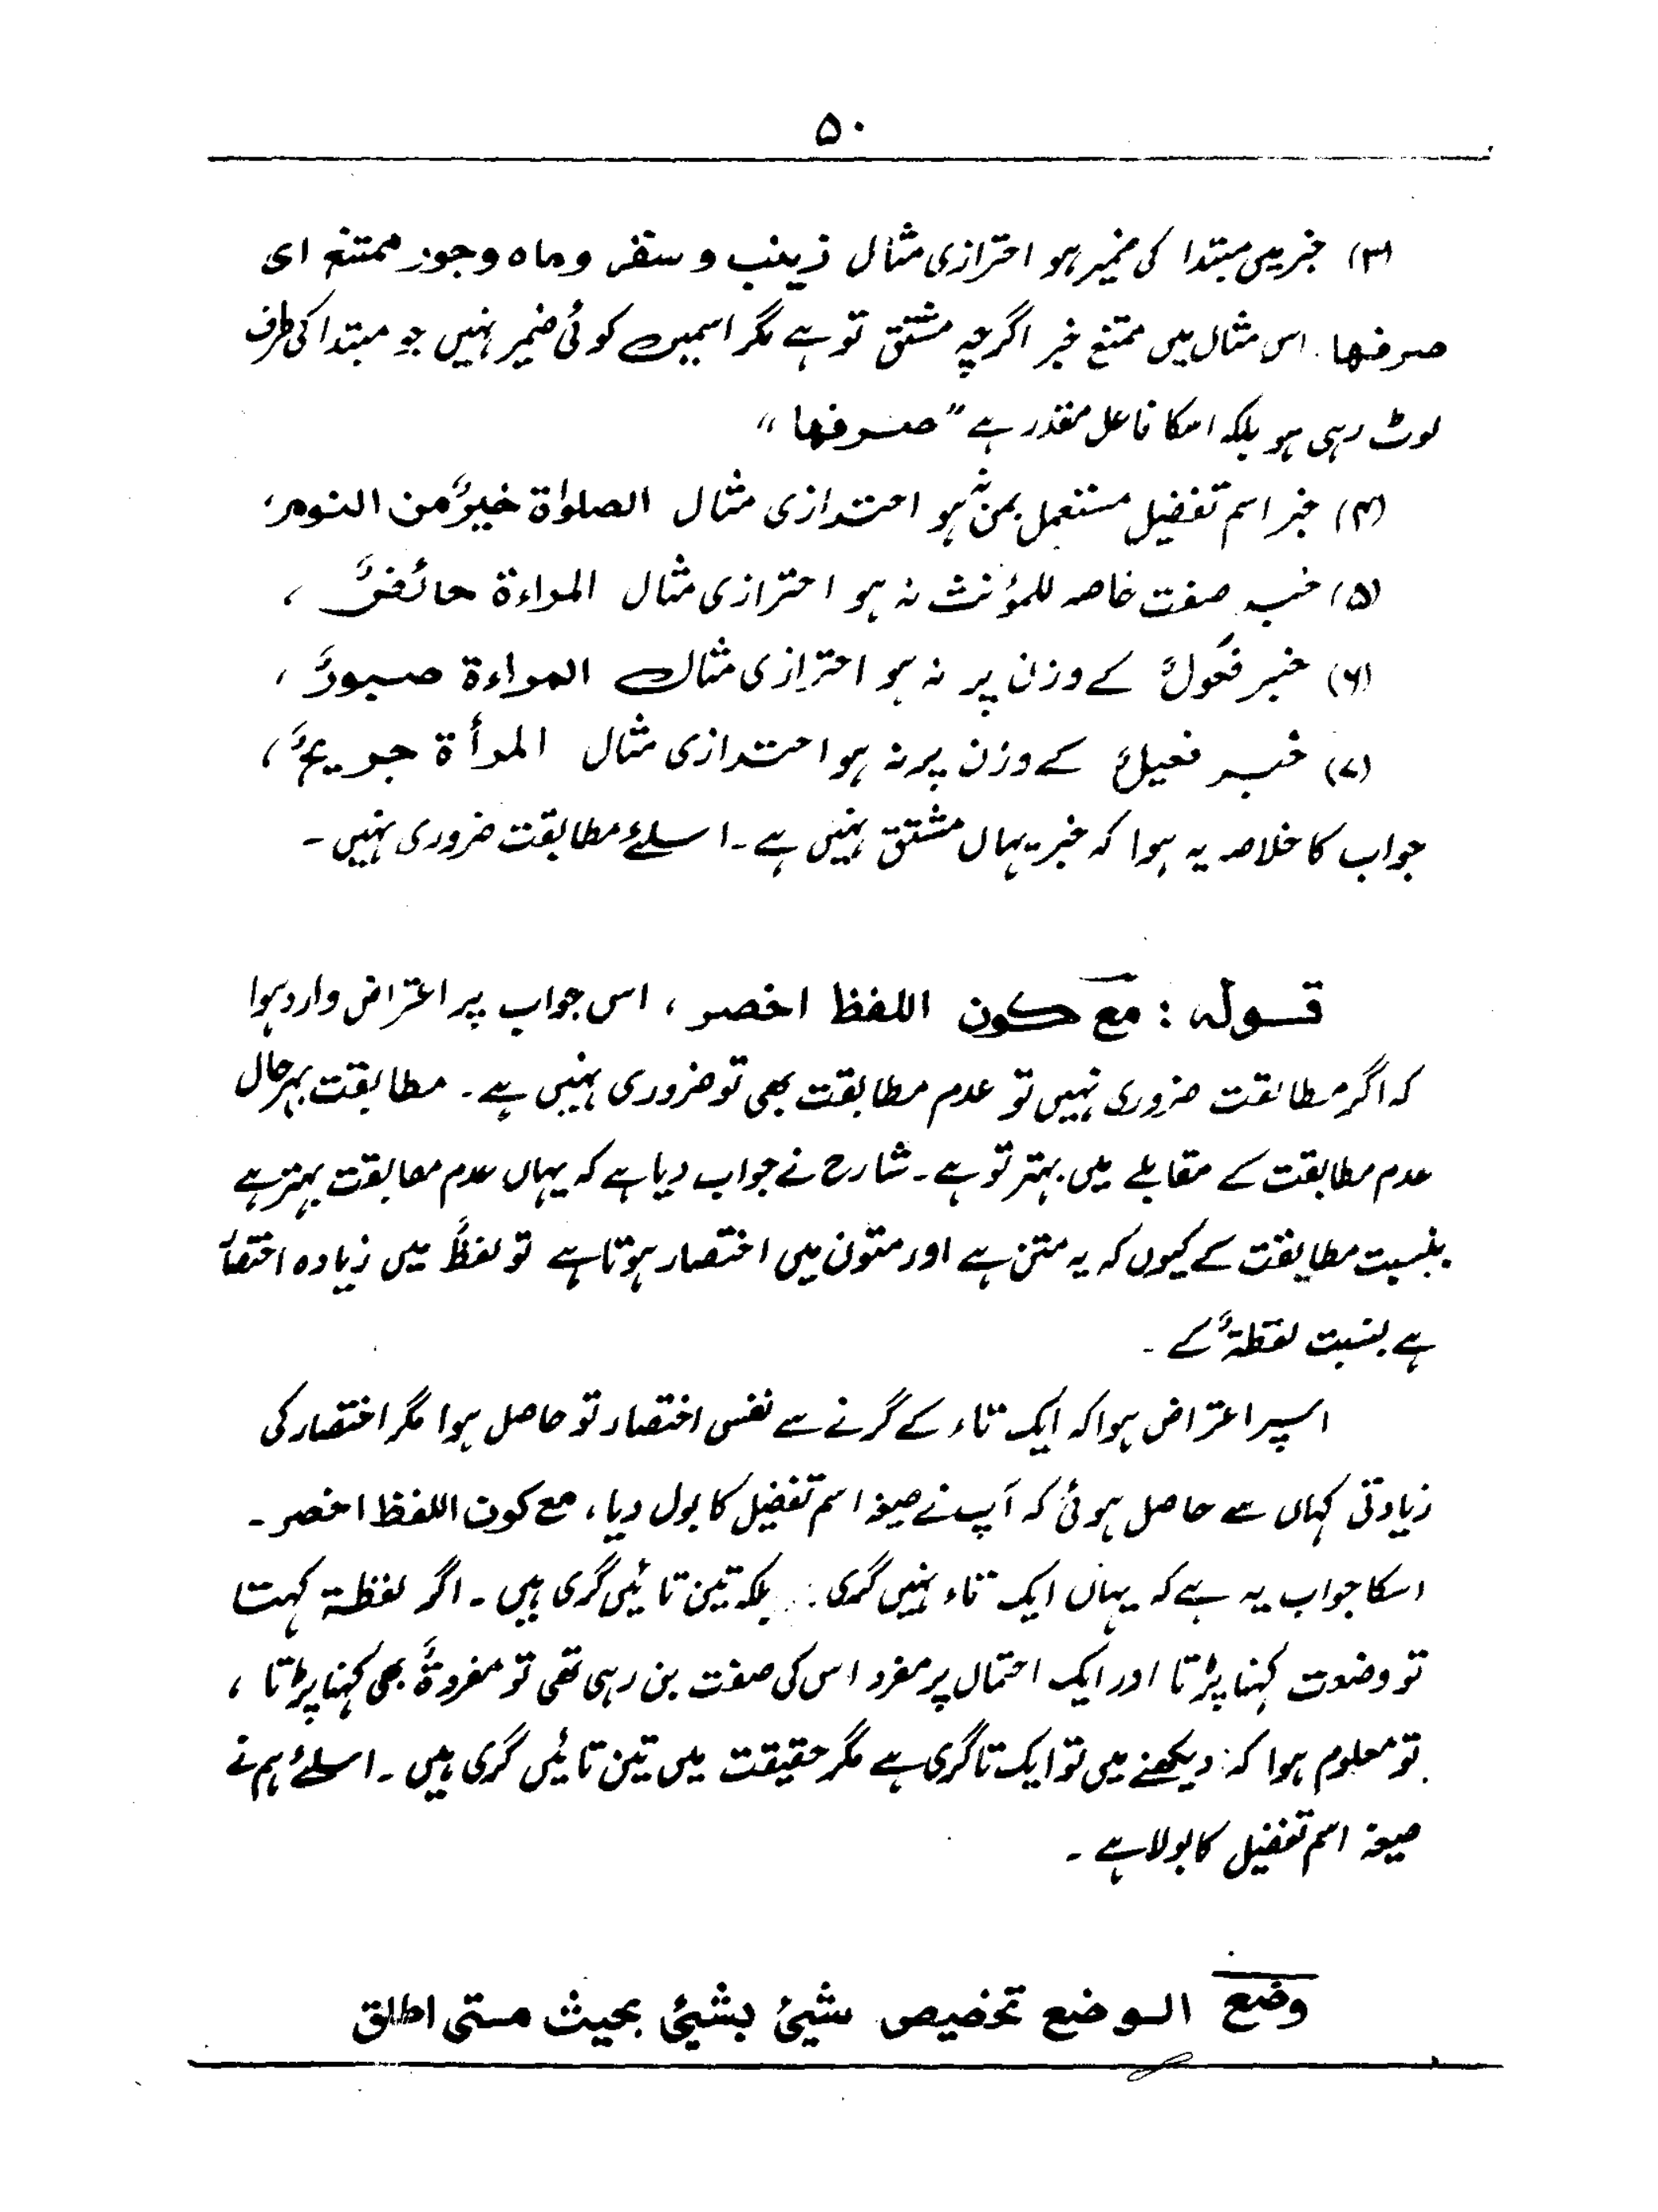 ۵۰
(۳) خبر میں مبتدا کی ضمیر ہو احترازی مثال زینب و سقر و ماہ وجور ممتنع ای
صرفها۔ اس مثال میں ممتنع خبر اگرچہ مشتق تو ہے مگر اسمیں کوئی ضمیر نہیں جو مبتدا کی طرف
لوٹ رہی ہو بلکہ اسکا فاعل مقدر ہے "صرفها"
(۴) خبر اسم تفضیل مستعمل بمن نہ ہو احترازی مثال الصلوٰۃ خیرٌ من النوم،
(۵) خبر صفت خاصہ للمؤنث نہ ہو احترازی مثال المراءۃ حائضٌ ،
(۶) خبر فَعُولٌ کے وزن پر نہ ہو احترازی مثال المراءۃ صبورٌ ،
(۷) خبر فعیلٌ کے وزن پر نہ ہو احترازی مثال المرأۃ جریحٌ ،
جواب کا خلاصہ یہ ہوا کہ خبر یہاں مشتق نہیں ہے۔ اسلئے مطابقت ضروری نہیں ۔
قولہ : مع کون اللفظ اخصر ، اس جواب پر اعتراض وارد ہوا
کہ اگر مطابقت ضروری نہیں تو عدم مطابقت بھی تو ضروری نہیں ہے۔ مطابقت بہرحال
عدم مطابقت کے مقابلے میں بہتر تو ہے۔ شارح نے جواب دیا ہے کہ یہاں عدم مطابقت بہتر ہے
بنسبت مطابقت کے کیوں کہ یہ متن ہے اور متون میں اختصار ہوتا ہے تو لفظٌ میں زیادہ اختصار
ہے بنسبت لفظۃٌ کے ۔
اسپر اعتراض ہوا کہ ایک تاء کے گرنے سے نفس اختصار تو حاصل ہوا مگر اختصار کی
زیادتی کہاں سے حاصل ہوئی کہ آپ نے صیغہ اسم تفضیل کا بول دیا، مع کون اللفظ اخصر ۔
اسکا جواب یہ ہے کہ یہاں ایک تاء نہیں گری بلکہ تین تائیں گری ہیں ۔ اگر لفظۃ کہتا
تو وضعت کہنا پڑتا اور ایک احتمال پر مفرد اس کی صفت بن رہی تھی تو مفردۃٌ بھی کہنا پڑتا ،
تو معلوم ہوا کہ دیکھنے میں تو ایک تا گری ہے مگر حقیقت میں تین تائیں گری ہیں ۔ اسلئے ہم نے
صیغہ اسم تفضیل کا بولا ہے ۔
وضع الوضع تخصیص شیئ بشیئ بحیث متی اطلق